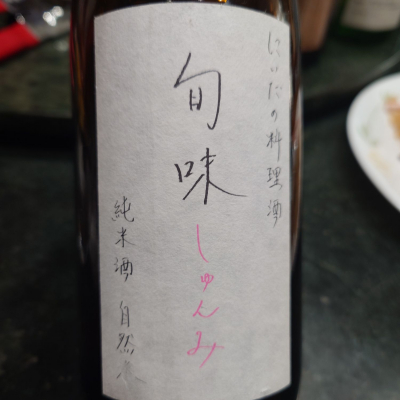 にいだの料理酒
旬味
しゅんみ
純米酒 自然